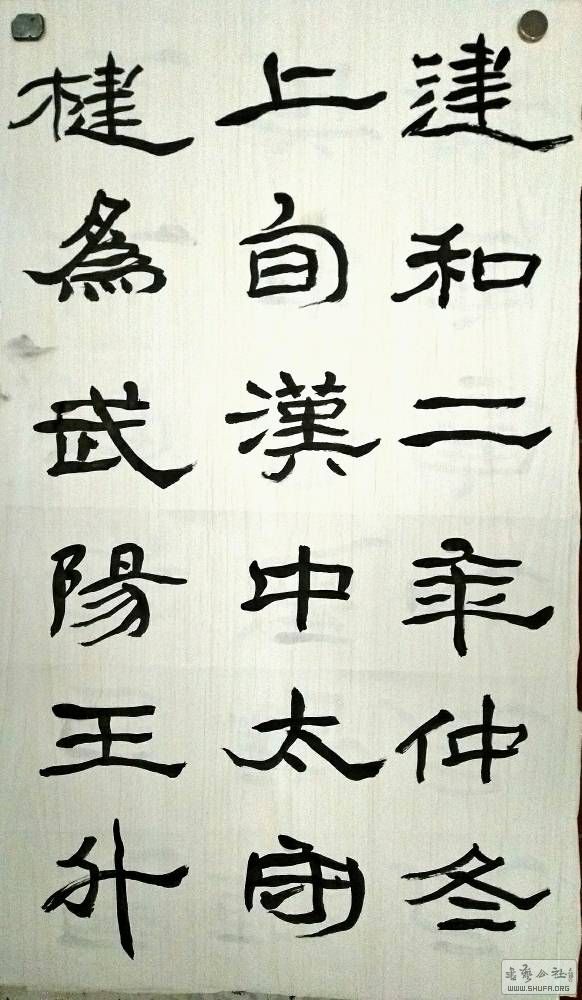 建和二年仲冬
上旬漢中太守
楗為武陽王升
WWW.SHUFA.ORG